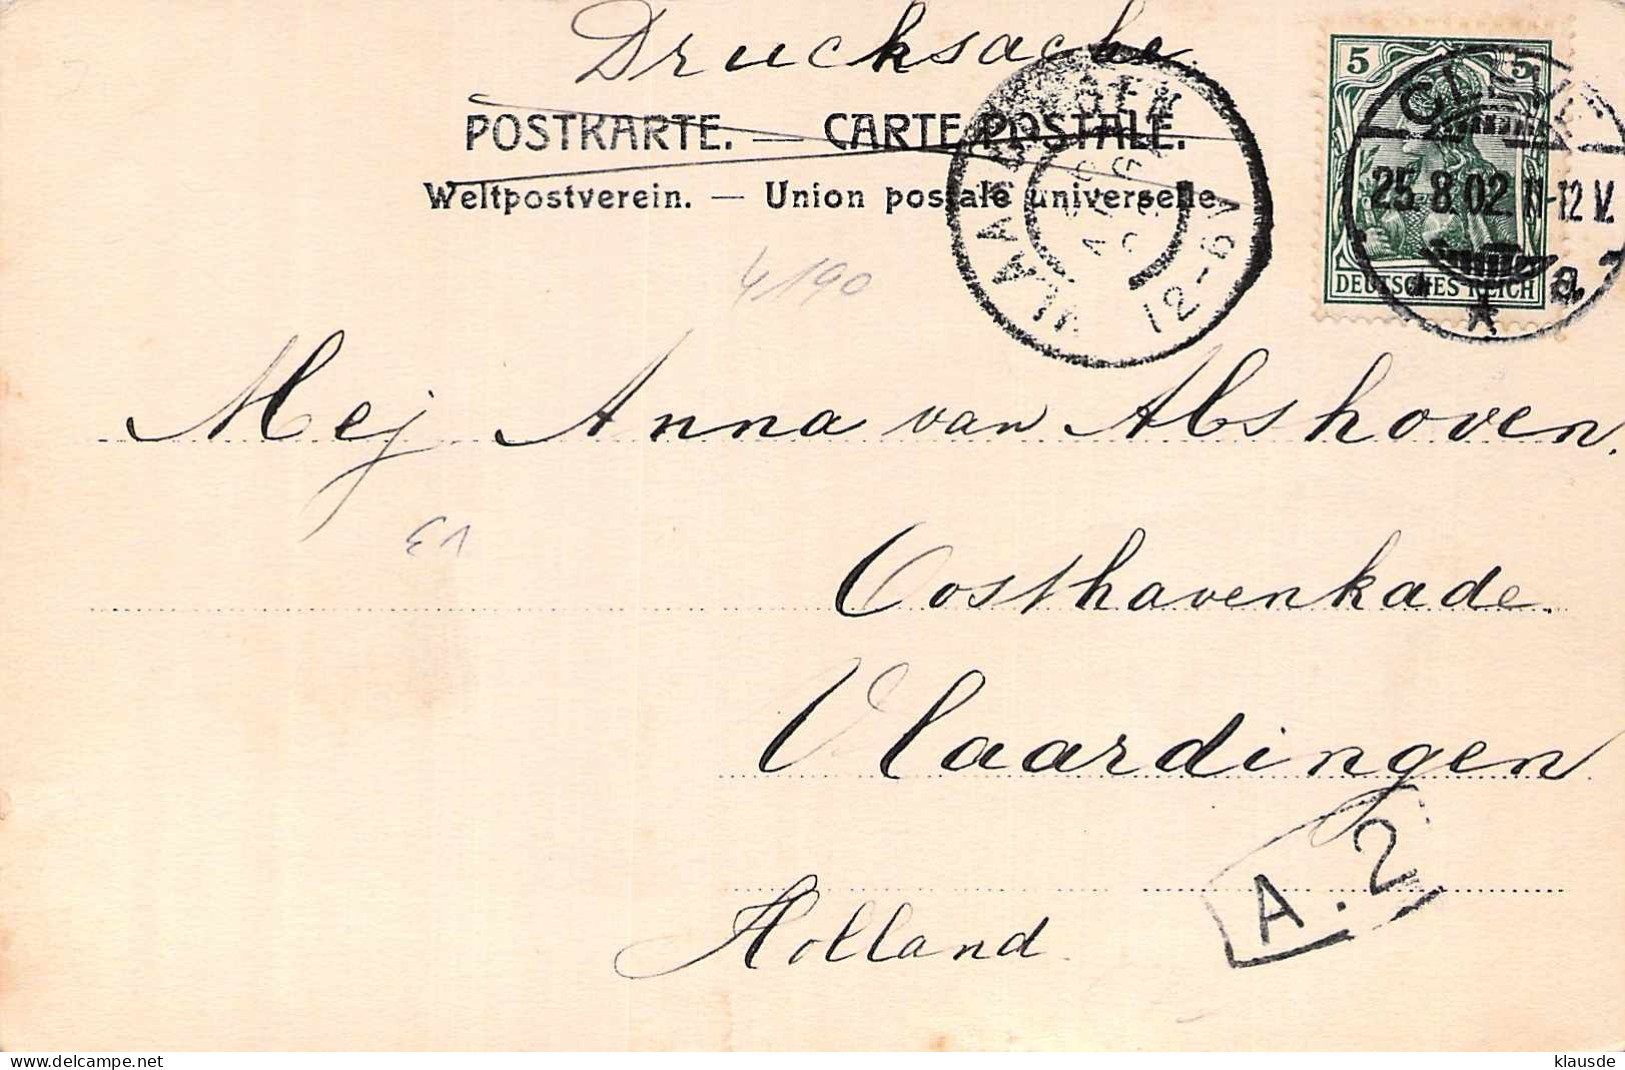 Drucksache.
POSTKARTE. — CARTE POSTALE.
Weltpostverein. — Union postale universelle
5 5
DEUTSCHES REICH
CLEVE
25.8.02. 11-12 V.
a.
VLAARDINGEN
12-6V
4190
Mej Anna van Alshoven.
Oosthavenkade.
Vlaardingen
Holland.
A.2
klausde